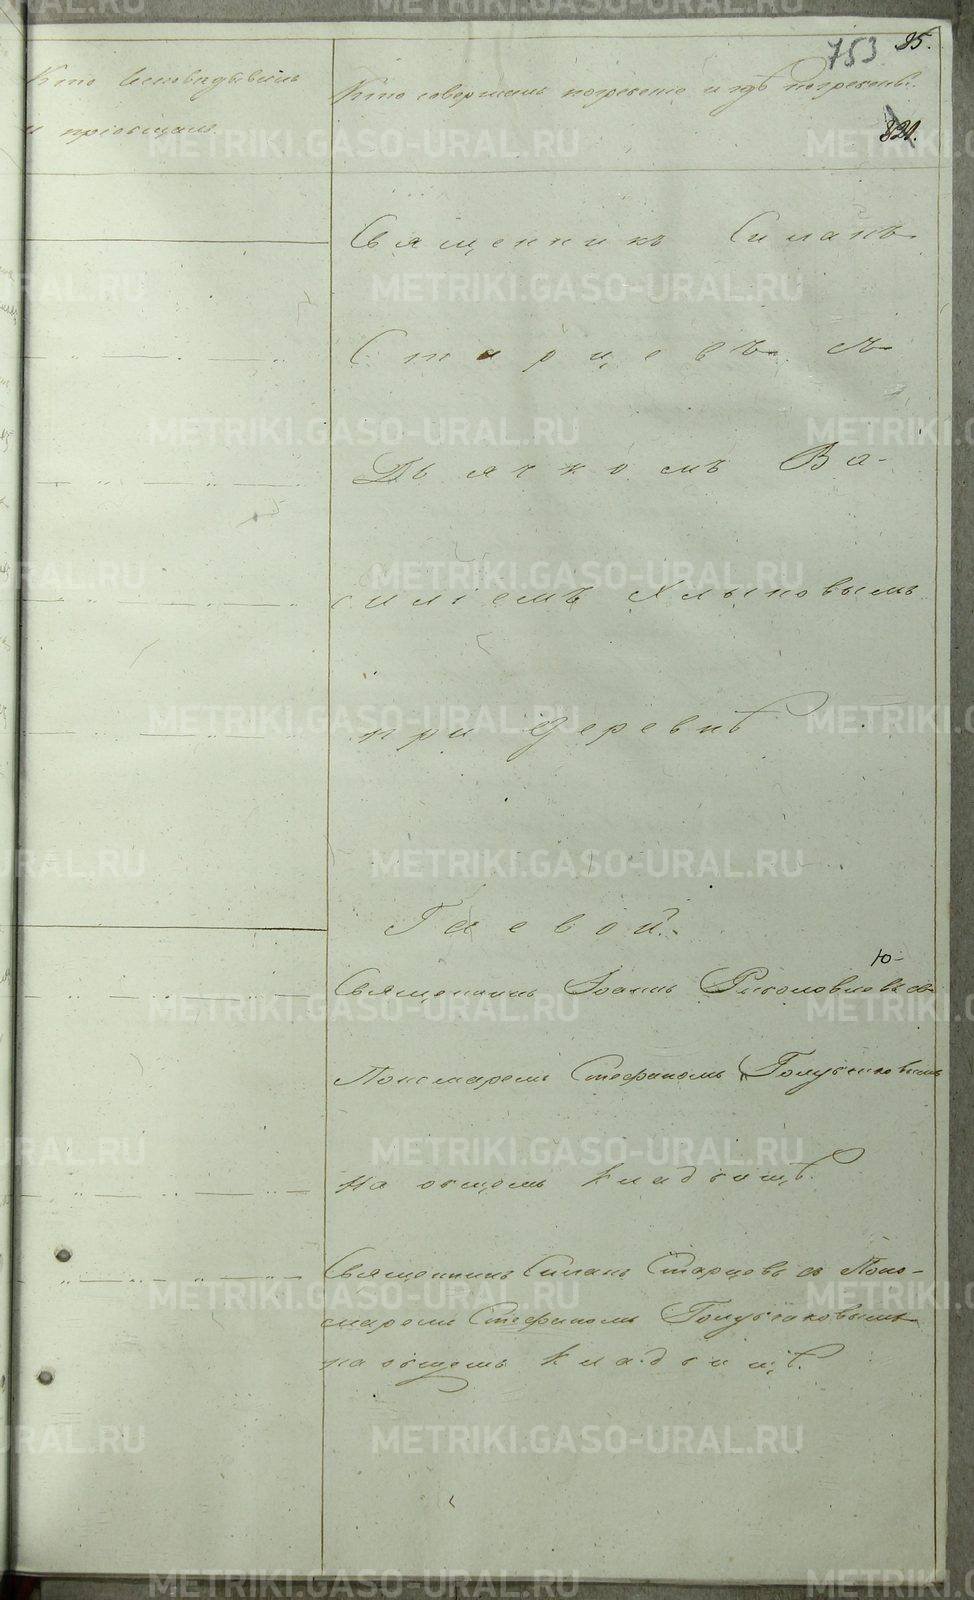 753 35.
Кто исповѣдывалъ
и пріобщалъ.
Кто совершалъ погребеніе и гдѣ погребены.
821.
Священникъ Силанъ
Старцевъ съ
Дьячкомъ Ва-
силіемъ Хлыновымъ
при деревнѣ
Гаевой.
Священникъ Іоаннъ съ
Пономаремъ Стефаномъ Голубчиковымъ
на общемъ кладбищѣ.
Священникъ Силанъ Старцевъ съ Поно-
маремъ Стефаномъ Голубчиковымъ
на общемъ кладбищѣ.
METRIKI.GASO-URAL.RU